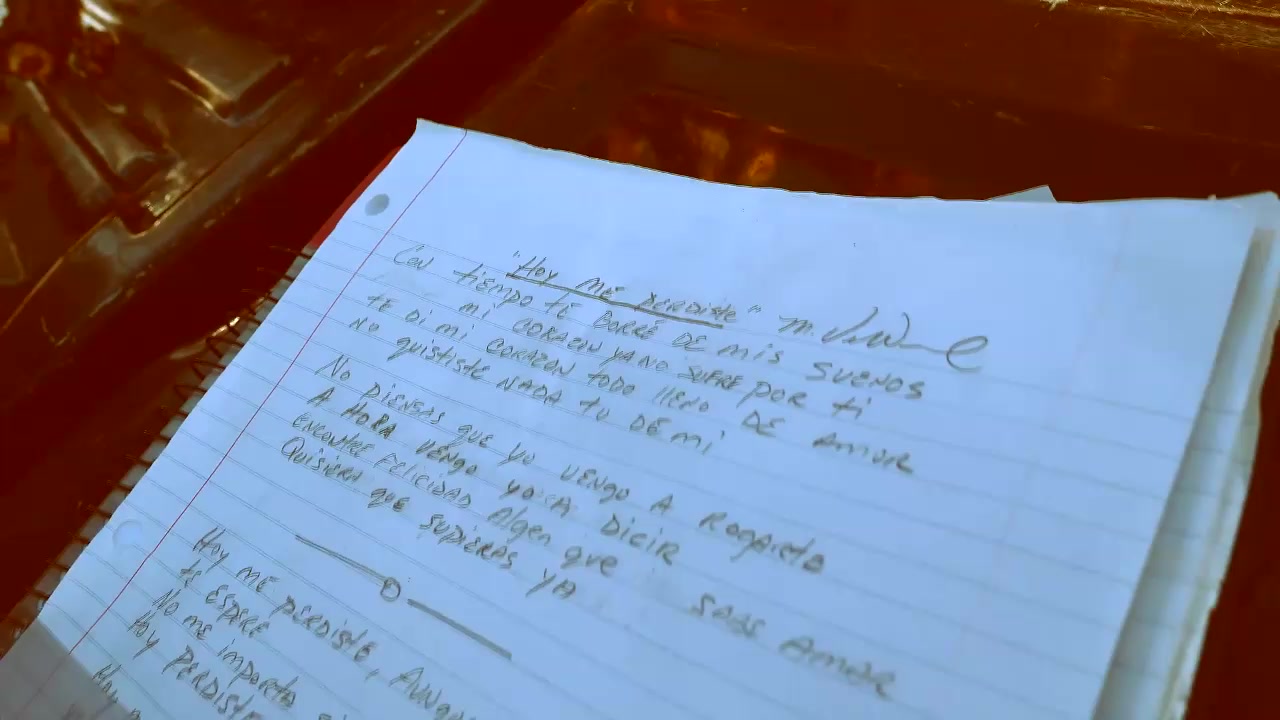 "Hoy ME PERDISTE"
CON tIEMPO tE BORRÉ DE MIS SUEÑOS
MI CORAZON YA NO SUFRE POR ti
tE DI MI CORAZON TODO llENO DE AMOR
NO quISISTE NADA tU DE Mi
NO PIENSAS quE yo VENGO A ROGARTE
A HORA VENGO yo A DICIR
ENCONTRE FELICIDAD Algen que SEAS AMOR
QuISIERA quE SUPIERAS YA
Hoy ME PERDISTE,
tE ESPERÉ
No ME IMPORTA
Hoy PERDISTE
Hoy